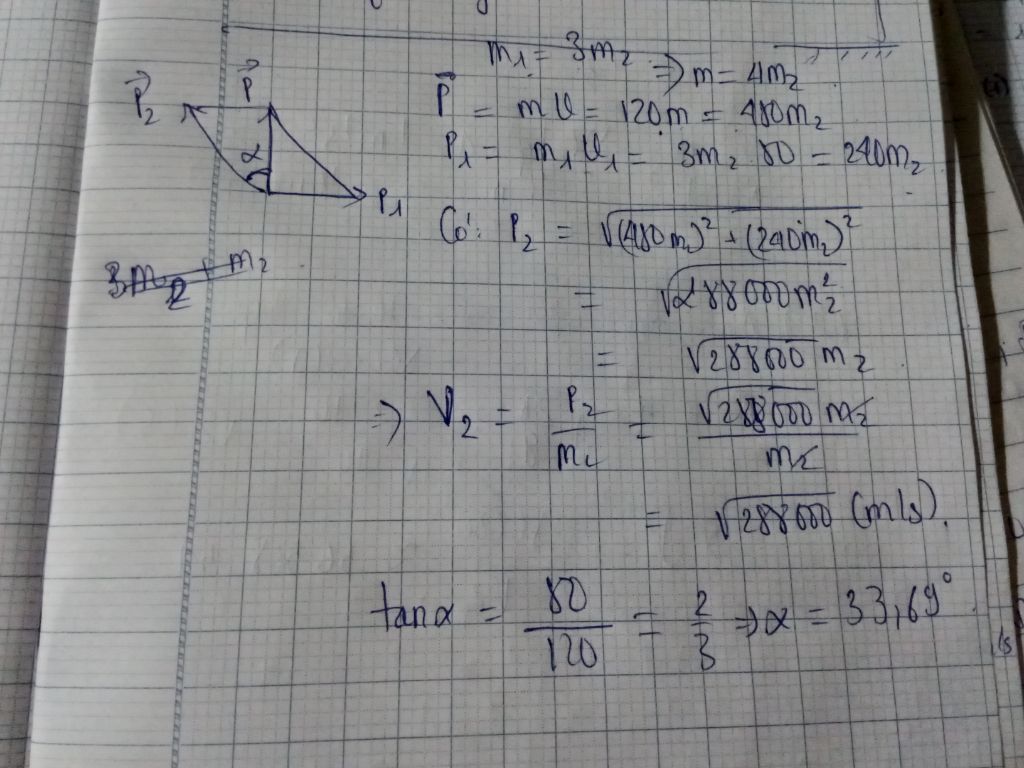 m₁ = 3m₂ ⇒ m = 4m₂
P⃗₂ P⃗
P⃗ = mv = 120m = 480m₂
P₁ = m₁v₁ = 3m₂.80 = 240m₂
α
P₁
Có: P₂ = √((480m₂)² + (240m₂)²)
3m₂ + m₂
= √(288000m₂²)
= √288000 m₂
⇒ V₂ = P₂/m₂ = √288000 m₂/m₂
= √288000 (m/s).
tanα = 80/120 = 2/3 ⇒ α = 33,69°